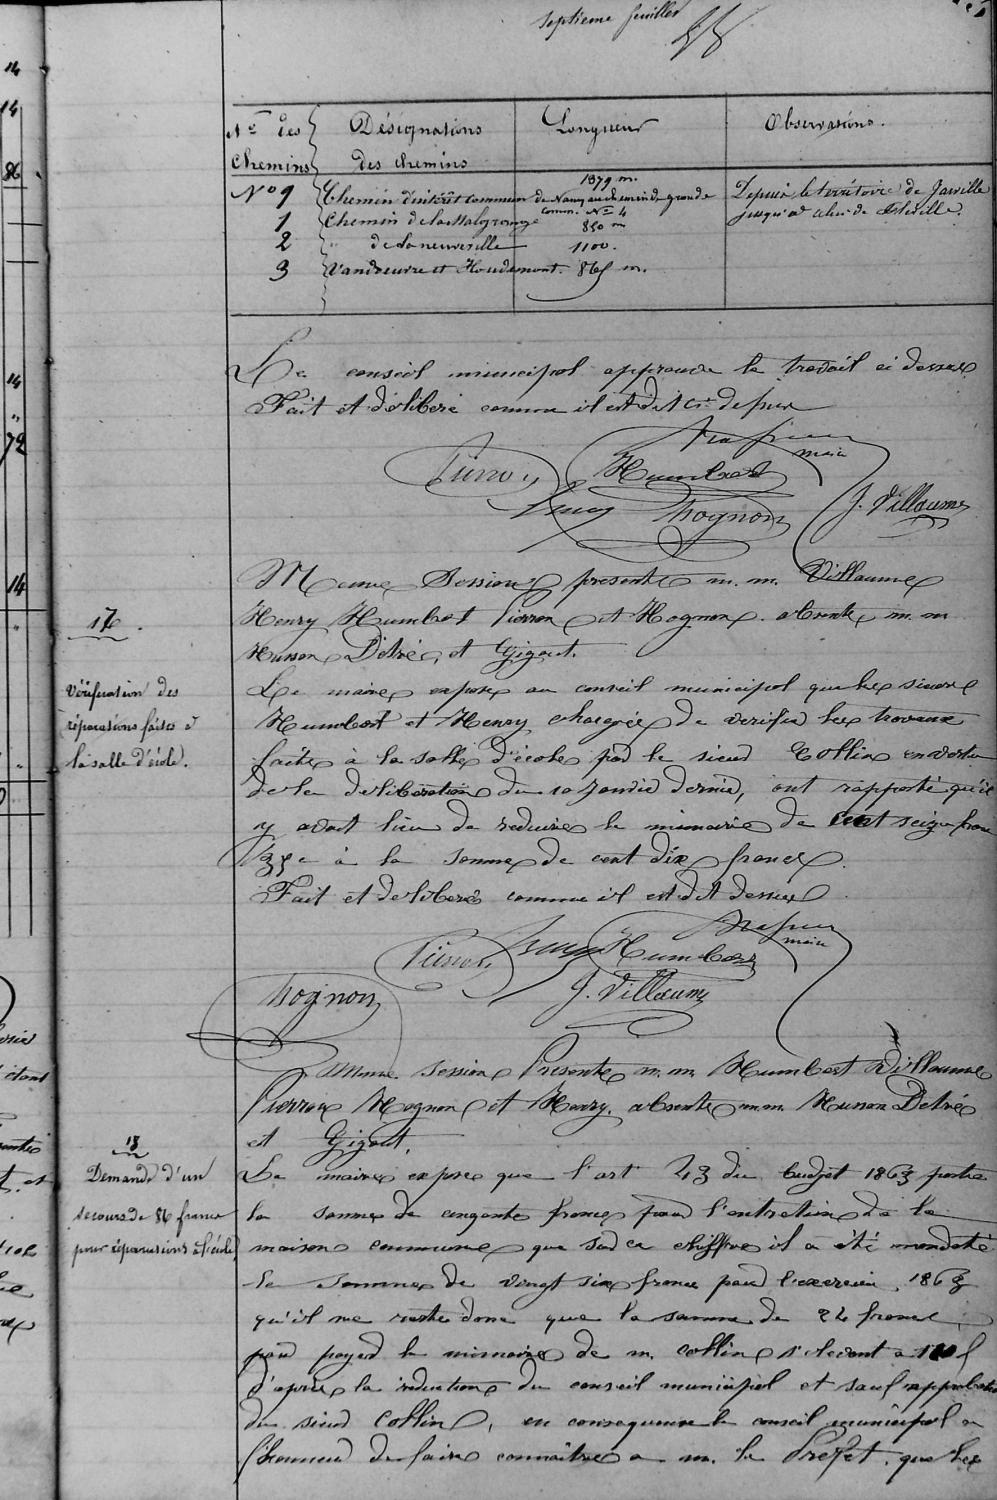 septieme feuillet
Nos des Chemins
Désignations des chemins
Longueur
Observations.
No 9 Chemin d'intérêt commun de Nancy au chemin de grande comm. No 4 1379 m. Depuis le territoire de Jarville jusqu'a celui de
1 Chemin de la Malgrange 850 m
2 " de Laneuveville 1100.
3 Vandoeuvre et Houdemont. 865 m.
Le conseil municipal approuve le travail ci dessus
Fait et déliberé comme il est dit ci dessus
maire
Pierron Humbert
Henry Hognon J. Villaume
Meme Session presents m.m. Villaume
Henry Humbert Pierron et Hognon. absents m.m
Husson Détré, et Gigout.
17
Vérification des
réparations faites à
la salle d'école.
Le maire expose au conseil municipal que les sieurs
Humbert et Henry chargés de verifier les travaux
faits à la salle d'école par le sieur Collin en vertu
de la deliberation du 10 Janvier dernier, ont rapporté qu'il
y avait lieu de reduire le mémoire de cent seize francs
35 c à la somme de cent dix francs.
Fait et deliberé comme il est dit dessus
maire
Pierron Henry Humbert
Hognon J. Villaume
Meme Session Presents m.m. Humbert Villaume
Pierron Hognon et Henry. absents m.m. Husson Detré
et Gigout.
18
Demande d'un
secours de 86 francs
pour réparations à l'école
Le maire expose que l'art 43 du budget 1863 porte
la somme de cinquante francs pour l'entretien de la
maison commune que sur ce chiffre il a été mandaté
la somme de vingt six francs pour l'exercice 1863
qu'il ne reste donc que la somme de 24 francs
pour payer le mémoire de m. Collin s'élevant a 110 f
d'après la reduction du conseil municipal et sauf approbation
du sieur Collin, en consequence le conseil municipal a
l'honneur de faire connaître a m. le Préfet. que les